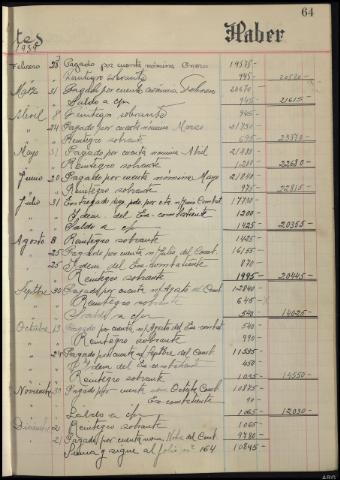 64
tes Haber
1939
Febrero 28 Pagado por cuenta nómina Enero 19575-
" " Reintegro sobrante 995- 20570-
Marzo 31 Pagado por cuenta nomina Febrero 20670-
" " Saldo a c/n 945- 21615-
Abril 8 Reintegro sobrante 945-
" 24 Pagado por cuenta nomina Marzo 21730-
" " Reintegro sobrante 695- 23370-
Mayo 31 Pagado por cuenta nómina Abril
" " Reintegro sobrante 22630-
Junio 20 Pagado por cuenta nómina Mayo
" " Reintegro sobrante 975- 22815-
Julio 31 Entregado por cta n/ Junio Combat
" " Idem. del Ex-combatiente 1200-
" " Saldo a c/n 1425- 20355-
Agosto 8 Reintegro sobrante 1425-
" 25 Pagado por cuenta n/ Julio del Comt. 16155-
" 25 Idem del Ex-Combatiente 870-
" " Reintegro sobrante 1995- 20445-
Septbre 30 Pagado por cuenta n/ Agosto del Comt 12840-
" " Reintegro sobrante 645-
" " Saldo a c/n 540- 14025-
Octubre 13 Pagado por cuenta n/ Agosto del Ex-combat 540-
" " Reintegro sobrante 990-
" 24 Pagado por cuenta n/ Septbre del Comt. 11535-
" " Idem del Ex-combatiente 450-
" " Reintegro sobrante 1035- 14550-
Noviembre Pagado por cuenta Octubre Comt. 10875-
" " Ex-combatiente 90-
" " Saldo a c/n 1065- 12030-
Diciembre 2 Reintegro sobrante 1065-
" 21 Pagado por cuenta nom. Nvbre del Comt 9780-
Suma y sigue al folio nº 164 10845-